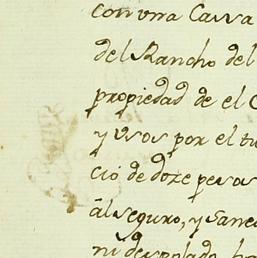 con vna Cassa
del Rancho del
propiedad de el
y vsos por el
cio de doze pesos
al seguro, y
ni despoblado